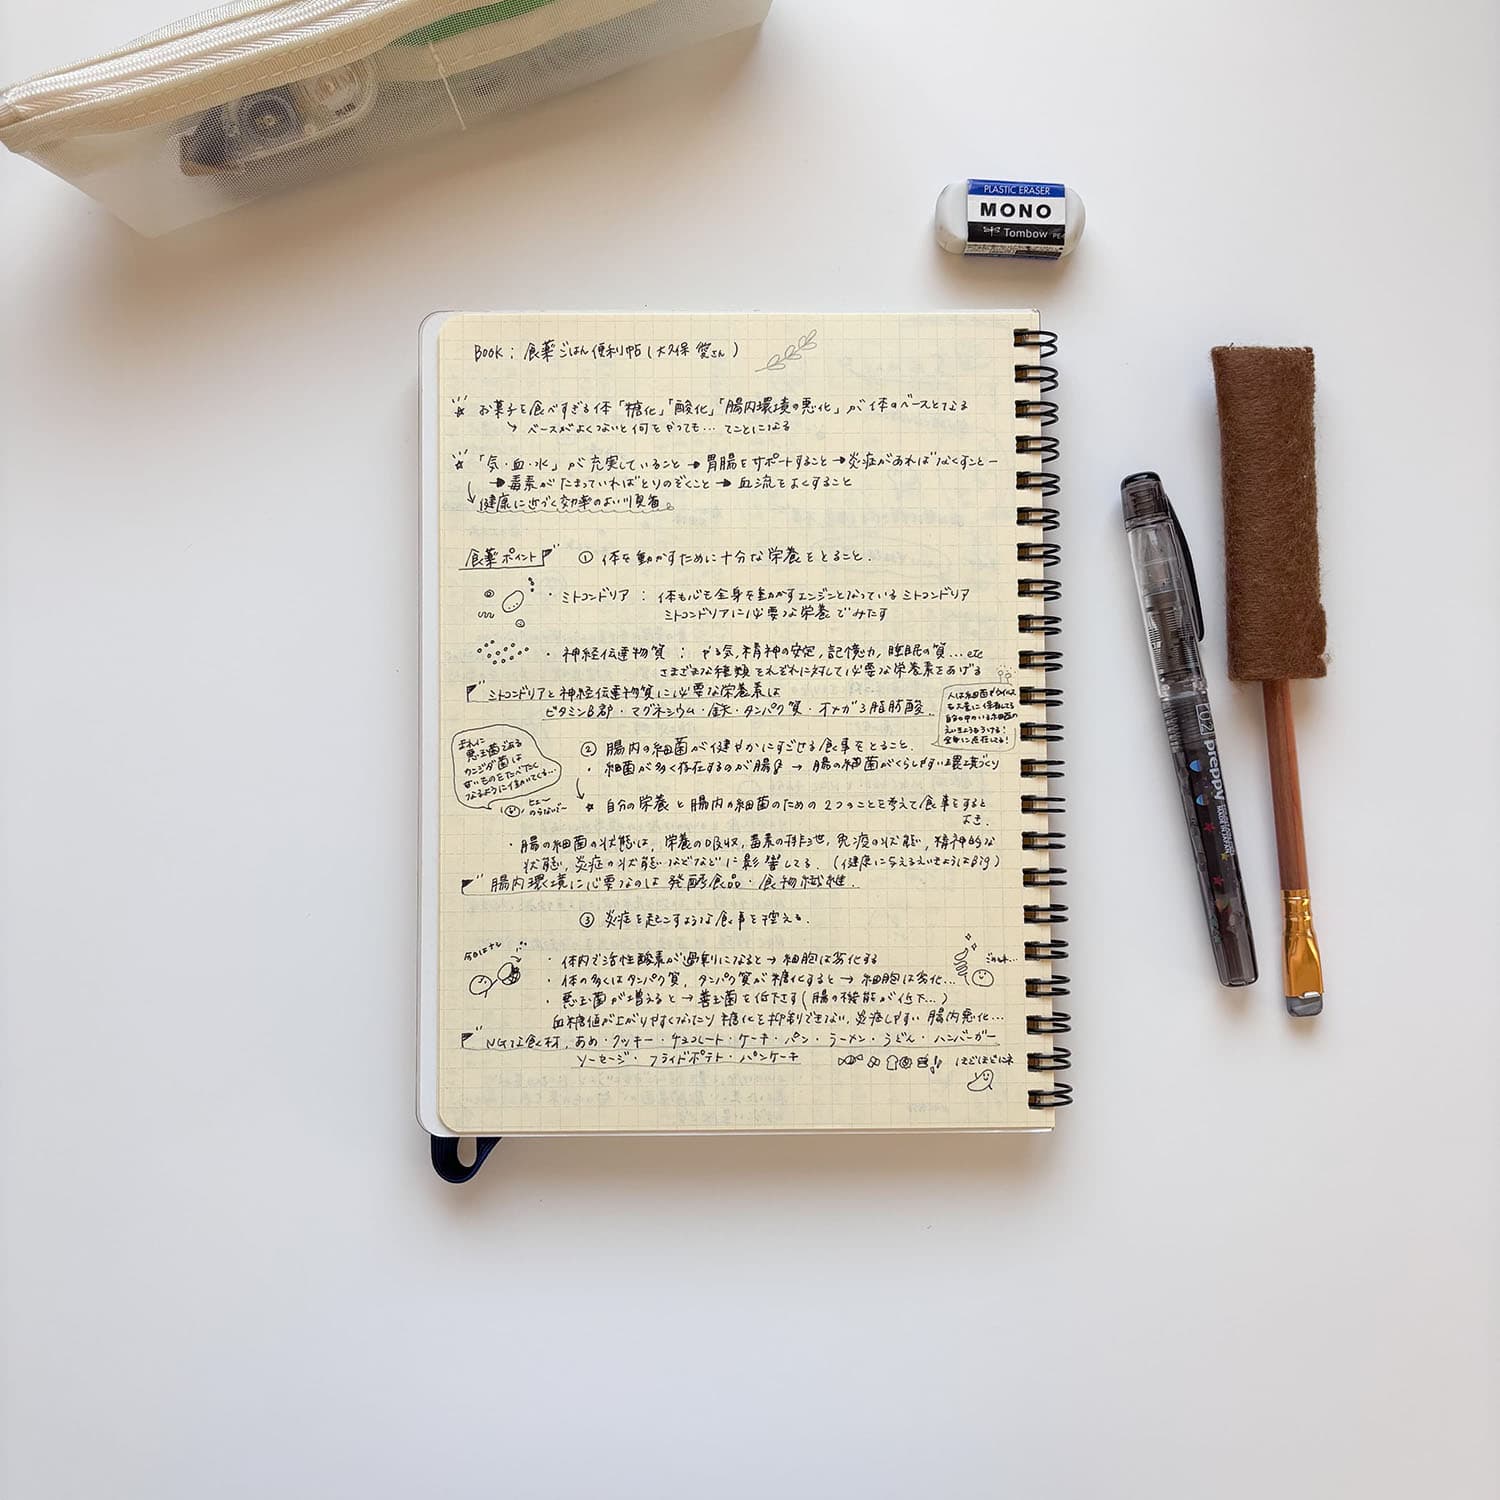 PLUS
PLASTIC ERASER
MONO
Tombow PE-
BOOK : 食薬ごはん便利帖 (大久保 愛さん)
お菓子を食べすぎる体「糖化」「酸化」「腸内環境の悪化」が体のベースとなる
ベースがよくないと何をやっても… てことになる
「気・血・水」が充実していること → 胃腸をサポートすること → 炎症があればなくすこと
→ 毒素がたまっていればとりのぞくこと → 血流をよくすること
健康に近づく効率のよい順番。
食薬ポイント
① 体を動かすために十分な栄養をとること.
・ミトコンドリア : 体も心も全身を動かすエンジンとなっているミトコンドリア
ミトコンドリアに必要な栄養でみたす
・神経伝達物質 : やる気, 精神の安定, 記憶力, 睡眠の質…etc
さまざまな種類それぞれに対して必要な栄養素をあげる
ミトコンドリアと神経伝達物質に必要な栄養素は
ビタミンB郡・マグネシウム・鉄・タンパク質・オメガ3脂肪酸.
人は細菌やウイルス
を大量に保有してる
自分の中のいる細菌の
えいきょうをうける!
全身に点在してる!
② 腸内の細菌が健やかにすごせる食事をとること.
・細菌が多く存在するのが腸 → 腸の細菌がくらしやすい環境づくり
まれに
悪玉菌である
カンジダ菌は
甘いものをたべたく
なるように働いてくる…
ヒェー
のろないでー
自分の栄養と腸内の細菌のための2つのことを考えて食事をすると
よき.
・腸の細菌の状態は, 栄養の吸収, 毒素の排泄, 免疫の状態, 精神的な
状態, 炎症の状態などなどに影響してる. (健康に与えるえいきょうはBig)
腸内環境に必要なのは 発酵食品・食物繊維.
③ 炎症を起こすような食事を控える.
今日はナシ
・体内で活性酸素が過剰になると → 細胞は劣化する
・体の多くはタンパク質, タンパク質が糖化すると → 細胞は劣化…
・悪玉菌が増えると → 善玉菌を低下さす (腸の機能が低下…)
血糖値が上がりやすくなったり 糖化を抑制できない, 炎症しやすい 腸内悪化…
NGな食材, あめ・クッキー・チョコレート・ケーキ・パン・ラーメン・うどん・ハンバーガー
ソーセージ・フライドポテト・パンケーキ
ほどほどにネ
preppy
02